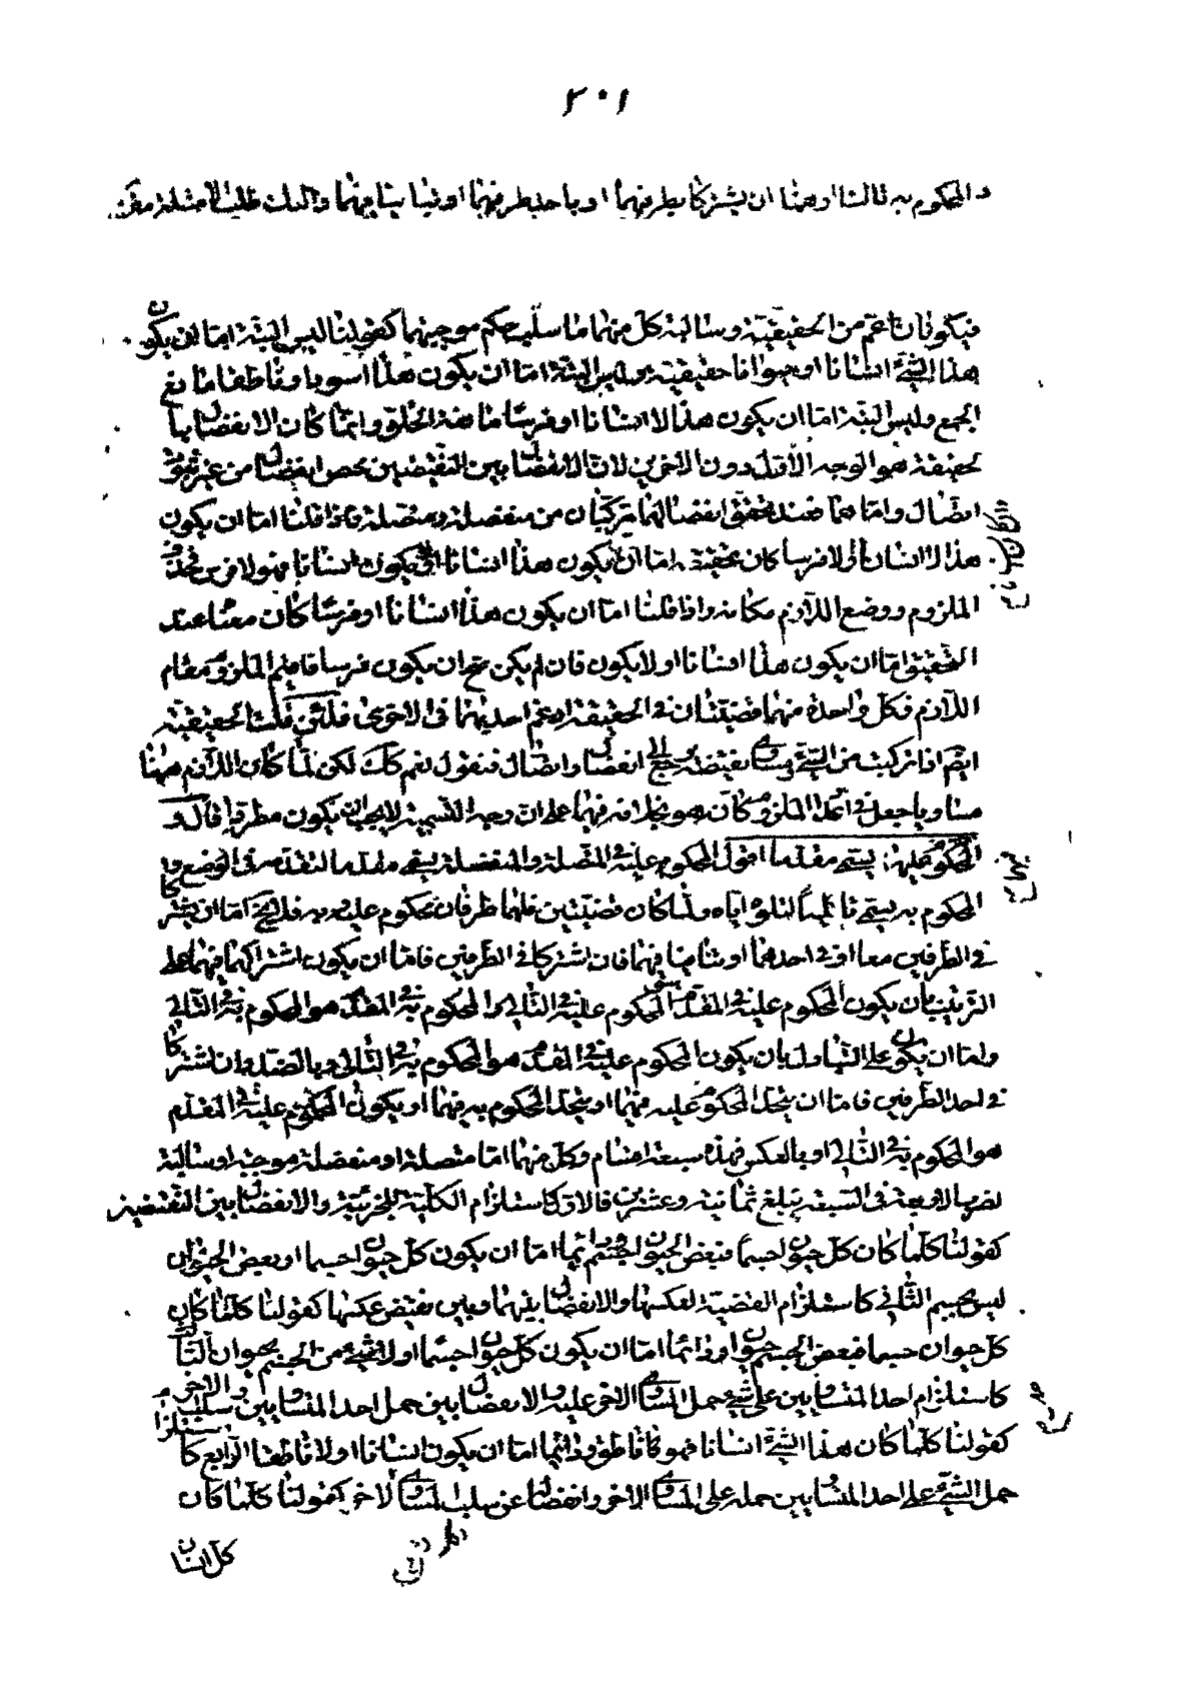 ٢٠١
والمحكوم به تاليا وهما ان يشتركا بطرفيهما او باحد طرفيهما او يتباينا فيهما واليك طلب الامثلة
فيكونان اعم من الحقيقية وسالبة كل منهما ما سلب حكم موجبتهما كقولنا ليس البتة اما ان يكون
هذا الشئ انسانا او حيوانا حقيقية وليس البتة اما ان يكون هذا اسود او ناطقا مانعة
الجمع وليس البتة اما ان يكون هذا لا انسانا او فرسا مانعة الخلو وانما كان الانفصال بالحقيقة
هو الوجه الاول دون الاخرين لان الانفصال بين النقيضين محض انفصال من غير شوب
اتصال واما هما فعند تحقق انفصالهما يتركبان من منفصلة ومتصلة فاذا قلنا اما ان يكون
هذا لا انسانا او لا فرسا كان تحقيقه اما ان يكون هذا انسانا او لا يكون انسانا فهو لا فرس فحذف
الملزوم ووضع اللازم مكانه واذا قلنا اما ان يكون هذا انسانا او فرسا كان معناه عند
التحقيق اما ان يكون هذا انسانا او لا يكون فان لم يكن صح ان يكون فرسا فاقيم الملزوم مقام
اللازم فكل واحدة منهما قضيتان في الحقيقة ادغم احديهما في الاخرى فلئن قلت الحقيقية
ايضا اذا تركبت من الشئ ومساوى نقيضه يرجع الى انفصال واتصال فنقول نعم كذلك لكن لما كان اللازم مهنا
مساويا جعل في الملزوم وكأنه هو بخلافه فيهما على ان وجه التسمية لا يجب ان يكون مطردا قال
المحكوم عليه يسمى مقدما اقول المحكوم عليه في المتصلة والمنفصلة يسمى مقدما لتقدمه في الوضع و
المحكوم به يسمى تاليا لتلوه اياه ولما كان قضيتين فلهما طرفان محكوم عليه وبه فلا يخ اما ان يشتركا
في الطرفين معا او في احدهما او يتباينا فيهما فان اشتركا في الطرفين فاما ان يكون اشتراكهما فيهما على
الترتيب بان يكون المحكوم عليه في المقدم هو المحكوم عليه في التالي والمحكوم به في المقدم هو المحكوم به في التالي
واما ان يكون على التبادل بان يكون المحكوم عليه في المقدم هو المحكوم به في التالى وبالضد وان اشتركا
في احد الطرفين فاما ان يتحد المحكوم عليه فيهما او يتحد المحكوم به فيهما او يكون المحكوم عليه في المقدم
هو المحكوم به في التالي او بالعكس فهذه سبعة اقسام وكل منهما اما متصلة او منفصلة موجبة او سالبة
نضربها الاربعة في السبعة يبلغ ثمانية وعشرين فالاول كاستلزام الكلية للجزئية والانفصال بين النقيضين
كقولنا كلما كان كل حيوان جسما فبعض الحيوان جسم ودائما اما ان يكون كل حيوان جسما او بعض الحيوان
ليس بجسم الثاني كاستلزام القضية لعكسها والانفصال بينهما وبين نقيض عكسها كقولنا كلما كان
كل حيوان جسما فبعض الجسم حيوان ودائما اما ان يكون كل حيوان جسما او لا شئ من الجسم بحيوان الثالث
كاستلزام احد المتساويين على شئ حمل المساوى الاخر عليه والانفصال بين حمل احد المتساويين وسلب الاخر
كقولنا كلما كان هذا الشئ انسانا فهو كان ناطق ودائما اما ان يكون انسانا او لا ناطقا الرابع كاستلزام
حمل الشئ على احد المتساويين حمله على المساوى الاخر وانفصاله عن سلب المساوى الاخر كقولنا كلما كان
كل انسان